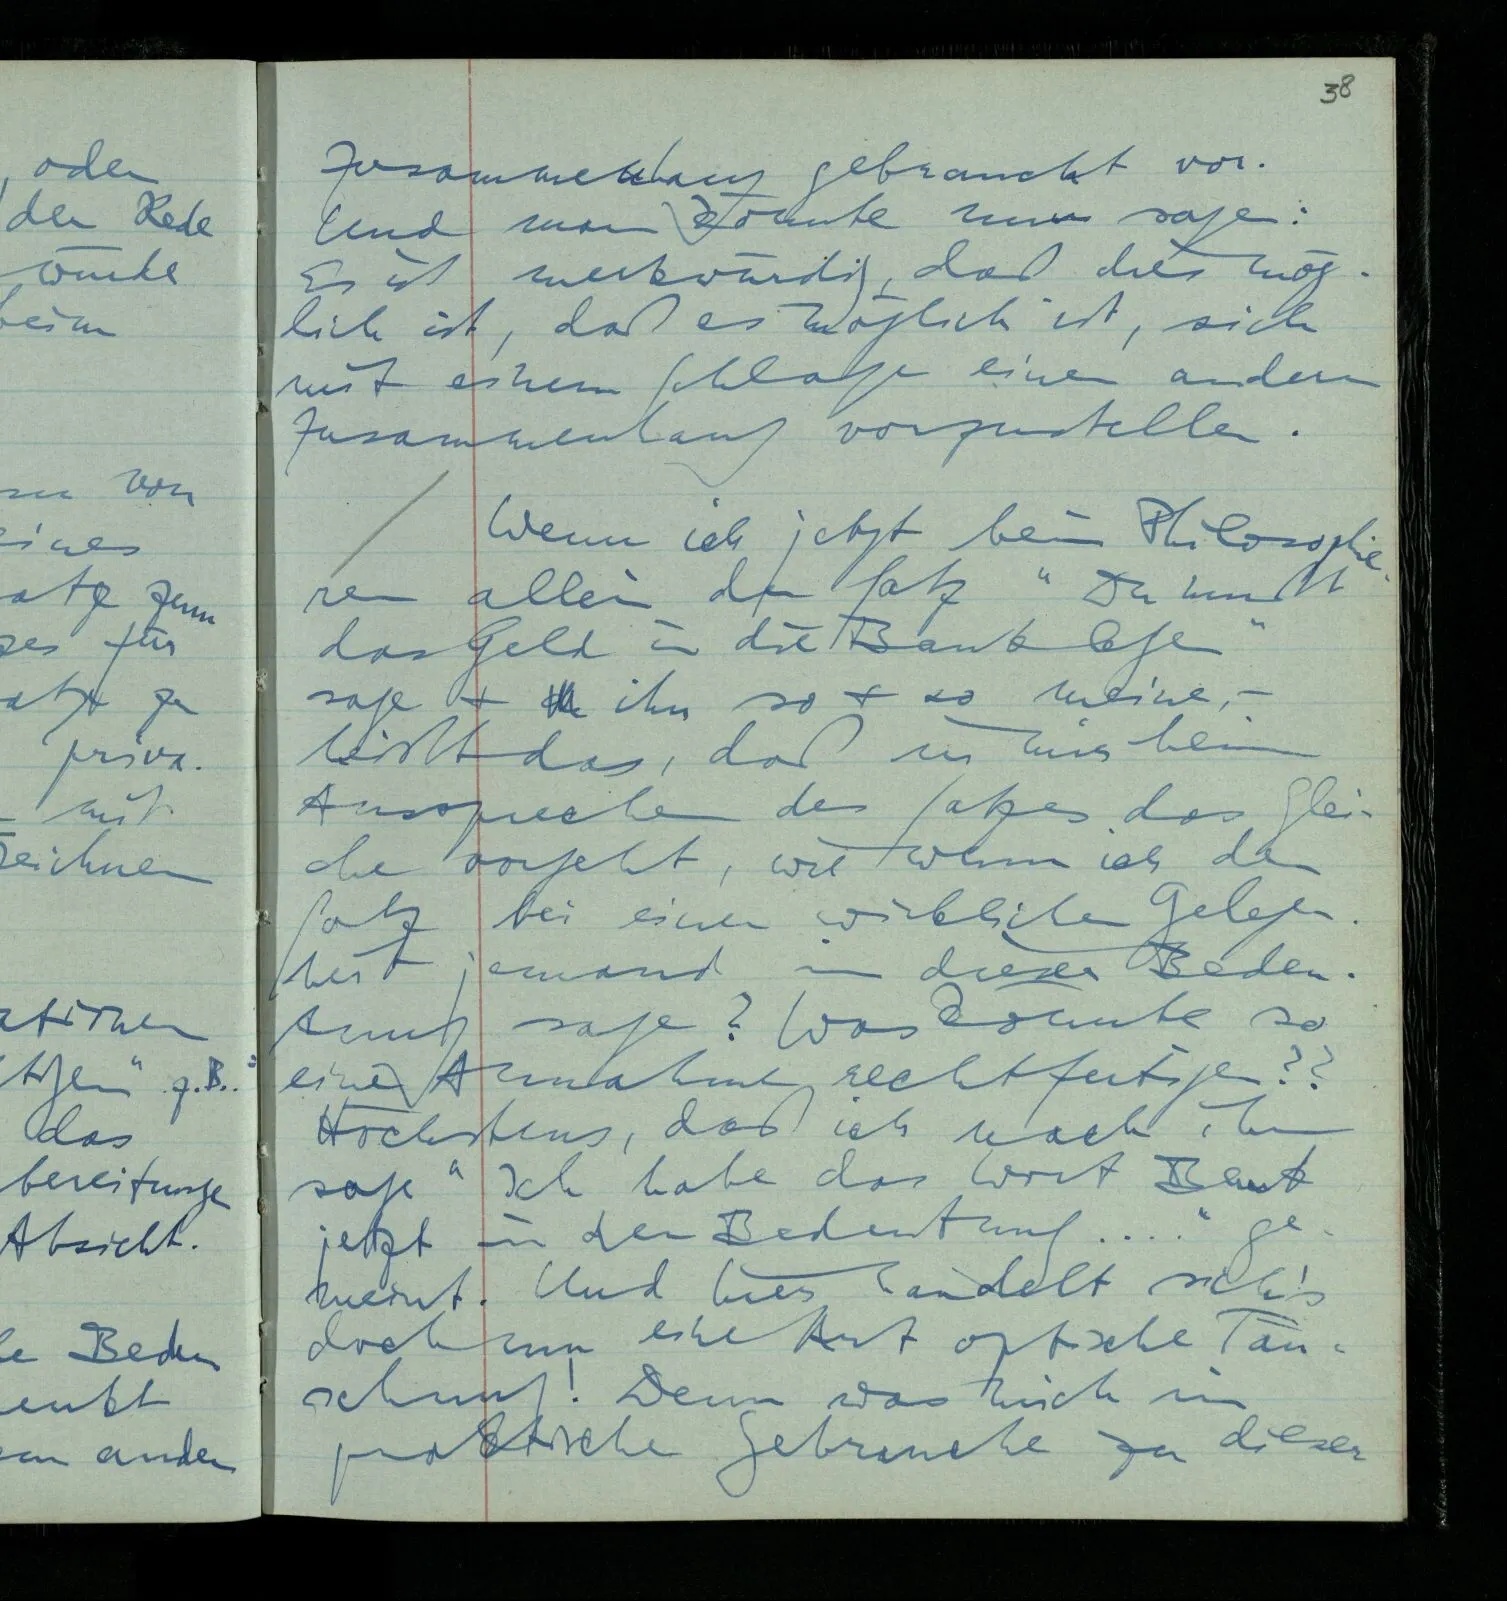 , oder
der Rede
würde
beim
von
eines
atz zum
zes für
atzt zu
priva-
mit
zeichnen
ationen
z.B.."
das
bereitunge
Absicht.
le Bedeu
denkt
andern
38
Zusammenhang gebraucht vor.
Und man könnte nun sagen:
Es ist merkwürdig, daß dies mög-
lich ist, daß es möglich ist, sich
mit einem Schlage einen andern
Zusammenhang vorzustellen.
/ Wenn ich jetzt beim Philosophie-
ren allein den Satz “Du mußt
das Geld in die Bank legen”
sage + ihn so + so meine, –
heißt das, daß in mir beim
Aussprechen des Satzes das Glei-
che vorgeht, wie wenn ich den
Satz bei einer wirklichen Gelegen-
heit jemand in dieser Bedeu-
tung sage? Was könnte so
eine Annahme rechtfertigen??
Höchstens, daß ich nach ihm
sage “Ich habe das Wort Bank
jetzt in der Bedeutung ....” ge-
meint. Und hier handelt sich's
doch um eine Art optische Täu-
schung! Denn was mich im
praktischen Gebrauche zu dieser